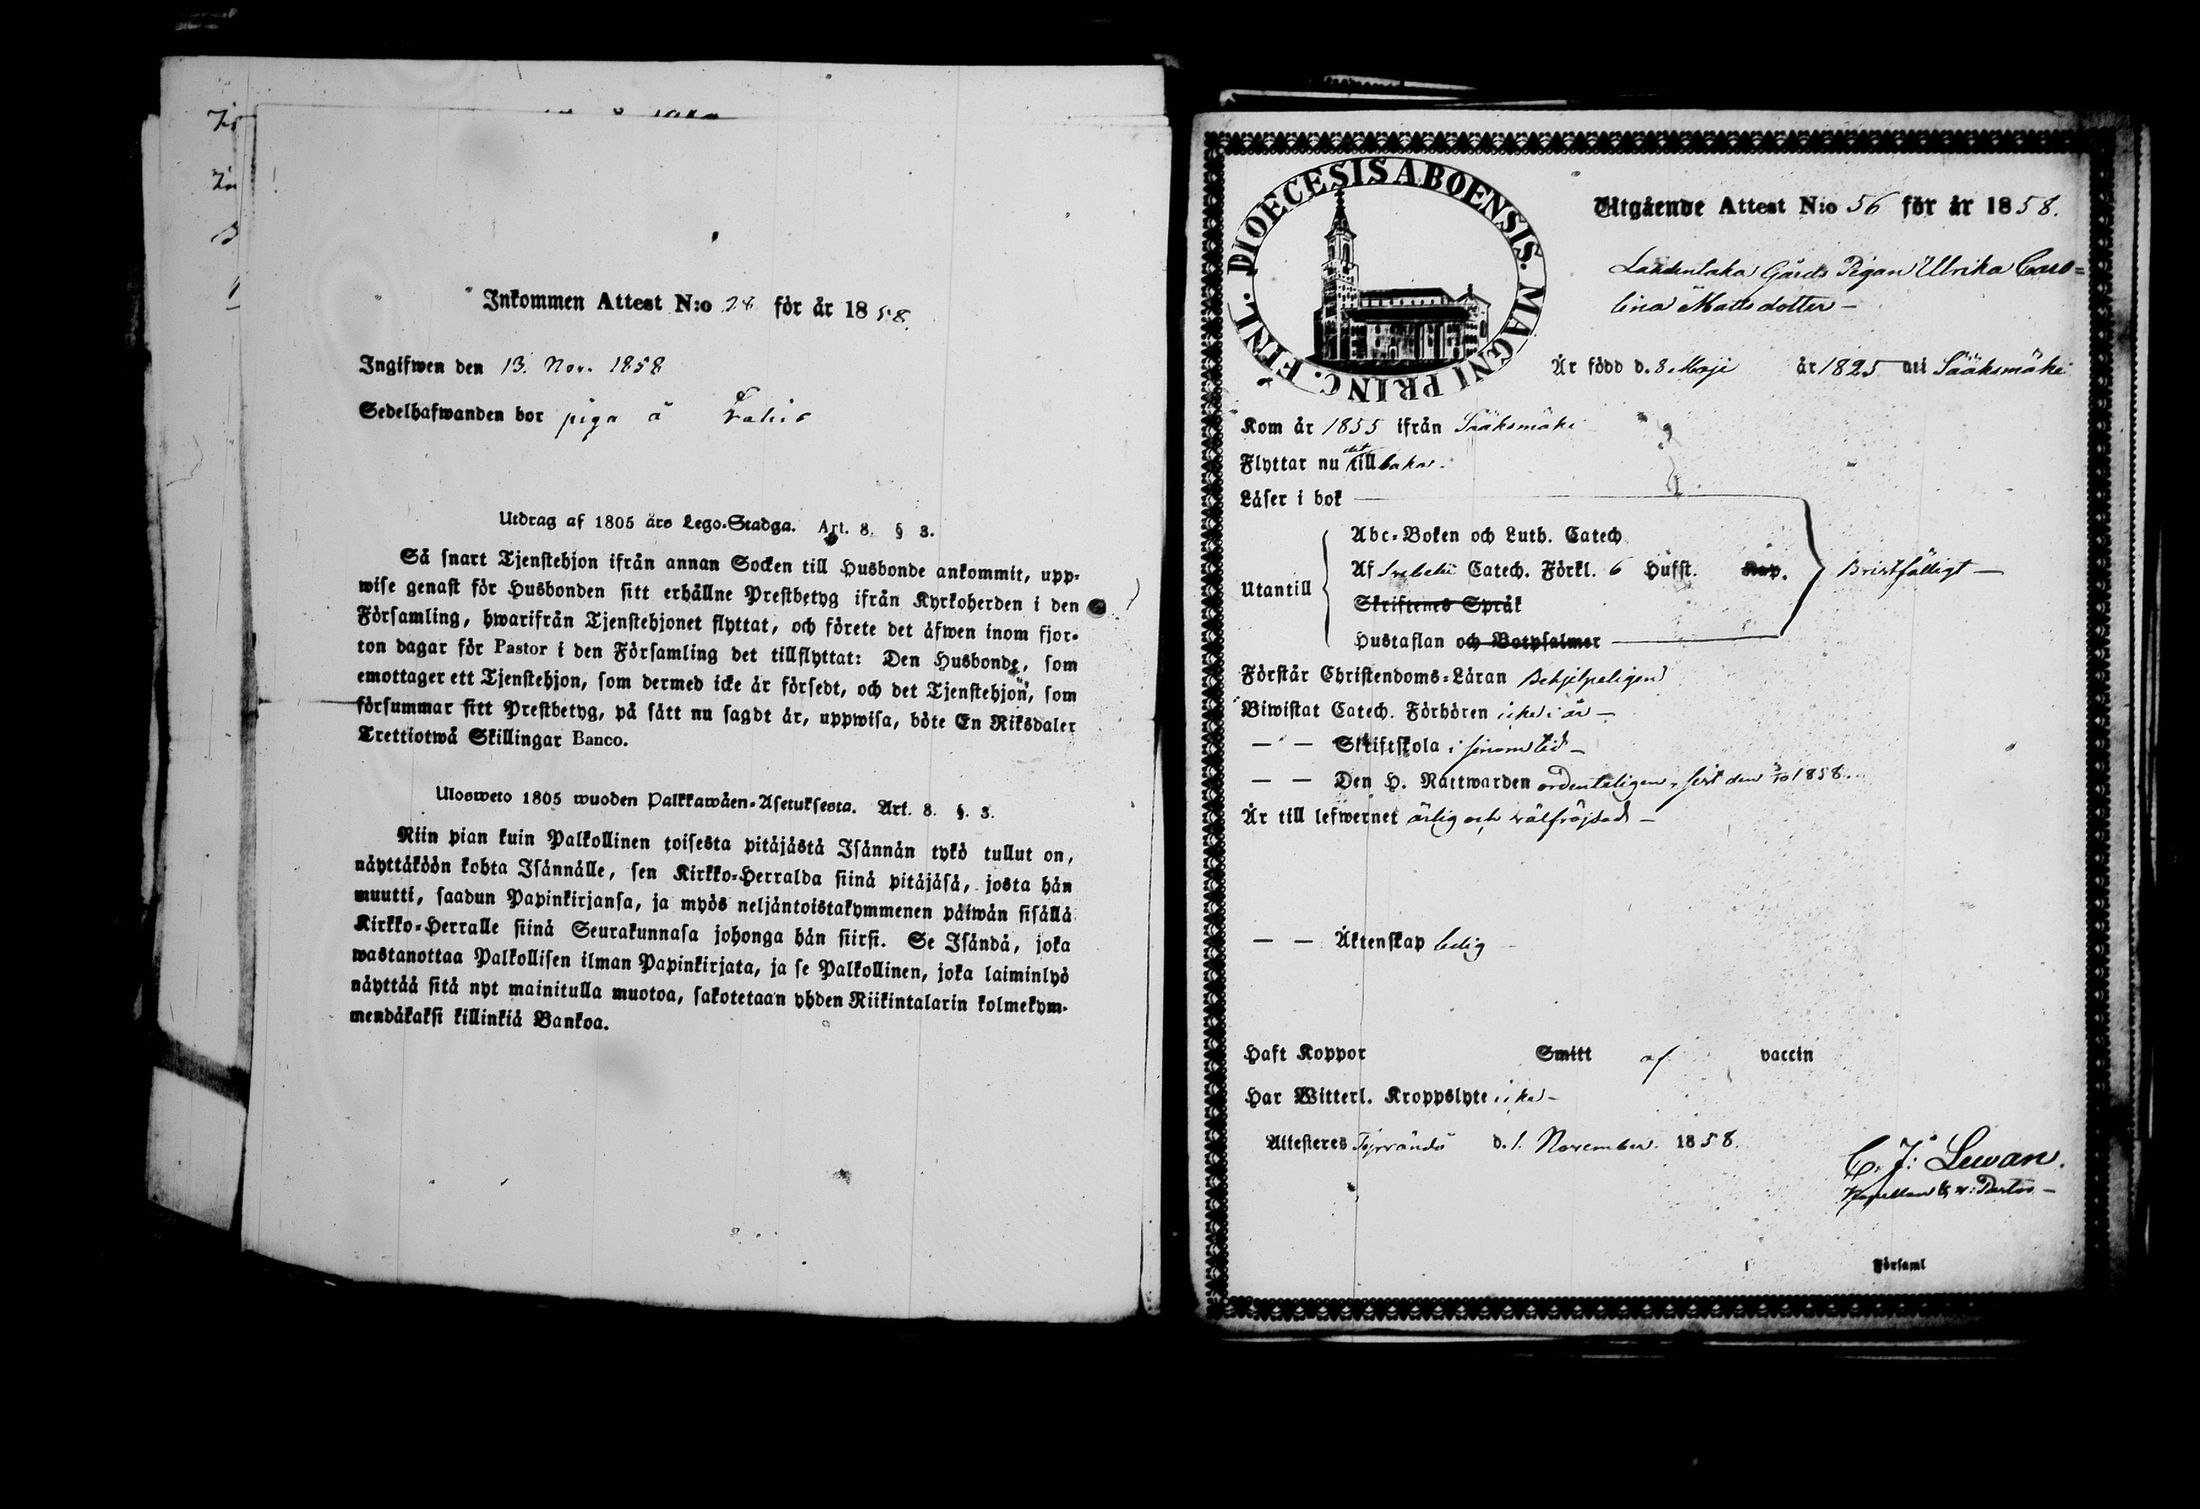 Inkommen Attest N:o 28 för år 1858.
Ingifwen den 13. Nov. 1858
Sedelhafwanden bor piga å
Utdrag af 1805 års Lego-Stadga. Art. 8. § 3.
Så snart Tjenstehjon ifrån annan Socken till Husbonde ankommit, upp-
wise genast för Husbonden sitt erhållne Prestbetyg ifrån Kyrkoherden i den
Församling, hwarifrån Tjenstehjonet flyttat, och förete det äfwen inom fjor-
ton dagar för Pastor i den Församling det tillflyttat: Den Husbonde, som
emottager ett Tjenstehjon, som dermed icke är försedt, och det Tjenstehjon, som
försummar sitt Prestbetyg, på sätt nu sagdt är, uppwisa, böte En Riksdaler
Trettiotwå Skillingar Banco.
Ulosweto 1805 wuoden Palkkawäen-Asetuksesta. Art. 8. §. 3.
Niin pian kuin Palkollinen toisesta pitäjästä Isännän tykö tullut on,
näyttäköön kohta Isännälle, sen Kirkko-Herralda siinä pitäjäsä, josta hän
muutti, saadun Papinkirjansa, ja myös neljäntoistakymmenen päiwän sisällä
Kirkko-Herralle siinä Seurakunnasa johonga hän siirsi. Se Isändä, joka
wastanottaa Palkollisen ilman Papinkirjata, ja se Palkollinen, joka laiminlyö
näyttää sitä nyt mainitulla muotoa, sakotetaan yhden Riikintalarin kolmekym-
mendäkaksi killinkiä Bankoa.
DIOECESIS ABOENSIS. MAGNI PRINC. FINL.
Utgående Attest N:o 56 för år 1858.
Gårds Pigan Ulrika Caro-
lina Matts dotter
Är född d. 8 Maji år 1825 uti Sääksmäki
Kom år 1855 ifrån Sääksmäki
Flyttar nu dit tillbaka.
Läser i bok
Utantill
Abc-Boken och Luth. Catech
Af Svebelii Catech. Förkl. 6 Hufst. Kap. Bristfälligt
Skriftenes Språk
Hustaflan och Botpsalmer
Förstår Christendoms-Läran Behjelpeligen
Biwistat Catech. Förhören icke i år
— — Skriftskola i sinom tid
— — Den H. Nattwarden ordenteligen, sist den 1858.
Är till lefwernet ärlig och wälfrejdad
— — Äktenskap ledig
Haft Koppor Smitt af vaccin
Har Witterl. Kroppslyte icke
Attesteres Tyrvändö d. 1. November 1858.
C. J. Lewan.
Kapellan & v: Pastor
Församl